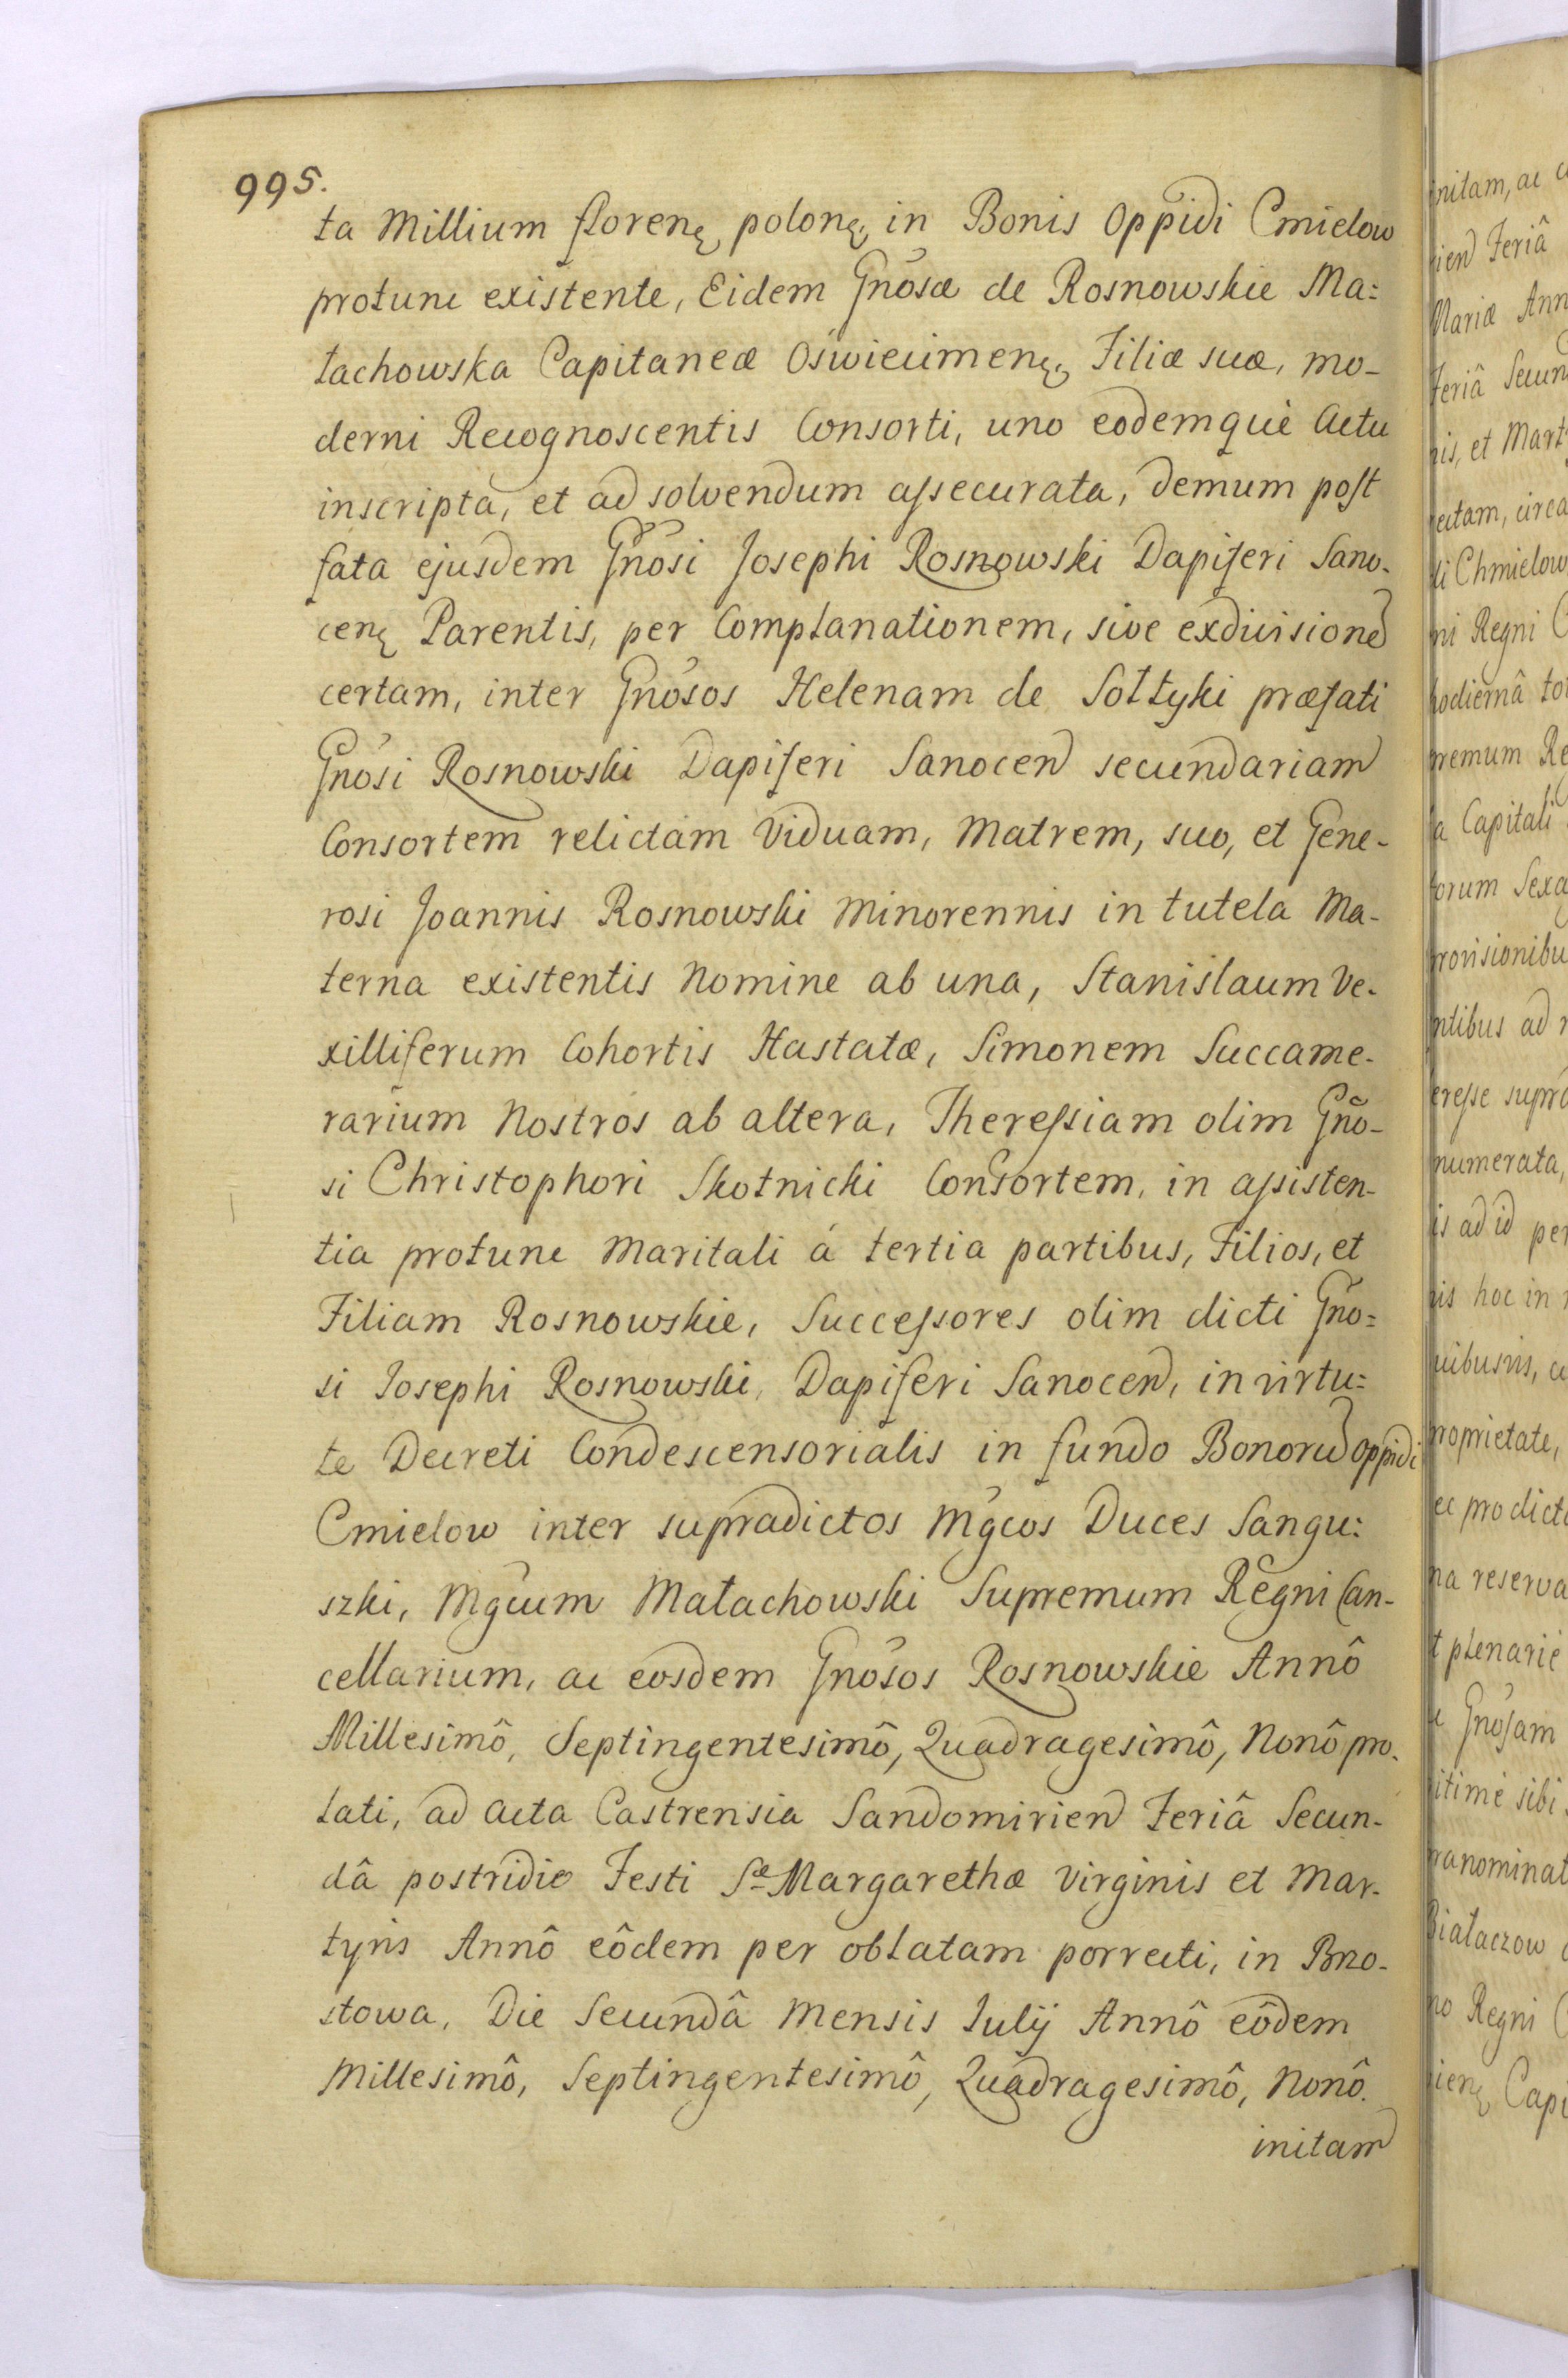 995.
ta Millium florenę polonę, in Bonis Oppidi Cmielow
protunc existente, Eidem Gnosæ de Rosnowskie Ma:
łachowska Capitaneæ Oświecimenę, Filiæ suæ, mo-
derni Recognoscentis Consorti, uno eodemque Actu
inscripta, et ad solvendum assecurata, demum post
fata ejusdem Gnosi Josephi Rosnowski Dapiferi Sano-
cenę Parentis, per Complanationem, sive exdivisione
certam, inter Gnosos Helenam de Sołtyki præfati
Gnosi Rosnowski Dapiferi Sanocen secundariam
Consortem relictam Viduam, Matrem, suo, et Gene-
rosi Joannis Rosnowski Minorennis in tutela Ma-
terna existentis Nomine ab una, Stanislaum Ve-
xilliferum Cohortis Hastatæ, Simonem Succame-
rarium Nostros ab altera, Theressiam olim Gno-
si Christophori Skotnicki Consortem, in assisten-
tia protunc Maritali á tertia partibus, Filios, et
Filiam Rosnowskie, Successores olim dicti Gno:
si Josephi Rosnowski, Dapiferi Sanocen, in virtu:
te Decreti Condescensorialis in fundo Bonoru Oppidi
Cmielow inter supradictos Mgcos Duces Sangu:
szki, Mgcum Małachowski Supremum Regni Can-
cellarium, ac eosdem Gnosos Rosnowskie Annô
Millesimô, Septingentesimô, Quadragesimô, Nonô pro-
lati, ad Acta Castrensia Sandomirien Feriâ Secun-
dâ postridie Festi Sæ Margarethæ Virginis et Mar-
tyris Annô eôdem per oblatam porrecti, in Brzo-
stowa, Die Secundâ Mensis Julij Annô eôdem
Millesimô, Septingentesimô, Quadragesimô, Nonô.
initam